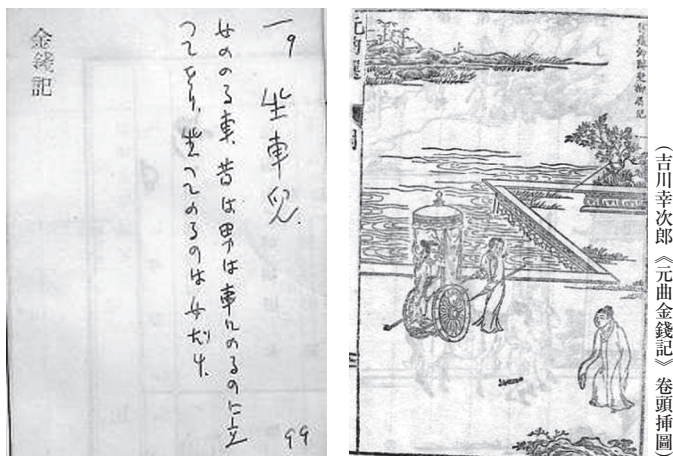 (吉川幸次郎《元曲金錢記》卷頭挿圖)
元曲選 圖
一9 坐車兒.
女ののる車、昔は男は車にのるのに立
つてをり、坐つてのるのは女だけ.
99
金錢記